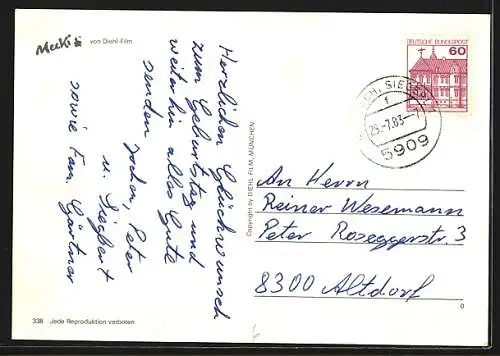 Mecki
von Diehl-Film
Herzlichen Glückwunsch
zum Geburtstag und
weiterhin alles Gute
senden
Jochen, Peter
u. Siegbert
sowie Fam. Gärtner
338 Jede Reproduktion verboten
Copyright by DIEHL FILM, MÜNCHEN
DEUTSCHE BUNDESPOST
60
f
25.-7.83--
5909
An Herrn
Reiner Wesemann
Peter Roseggerstr. 3
8300 Altdorf